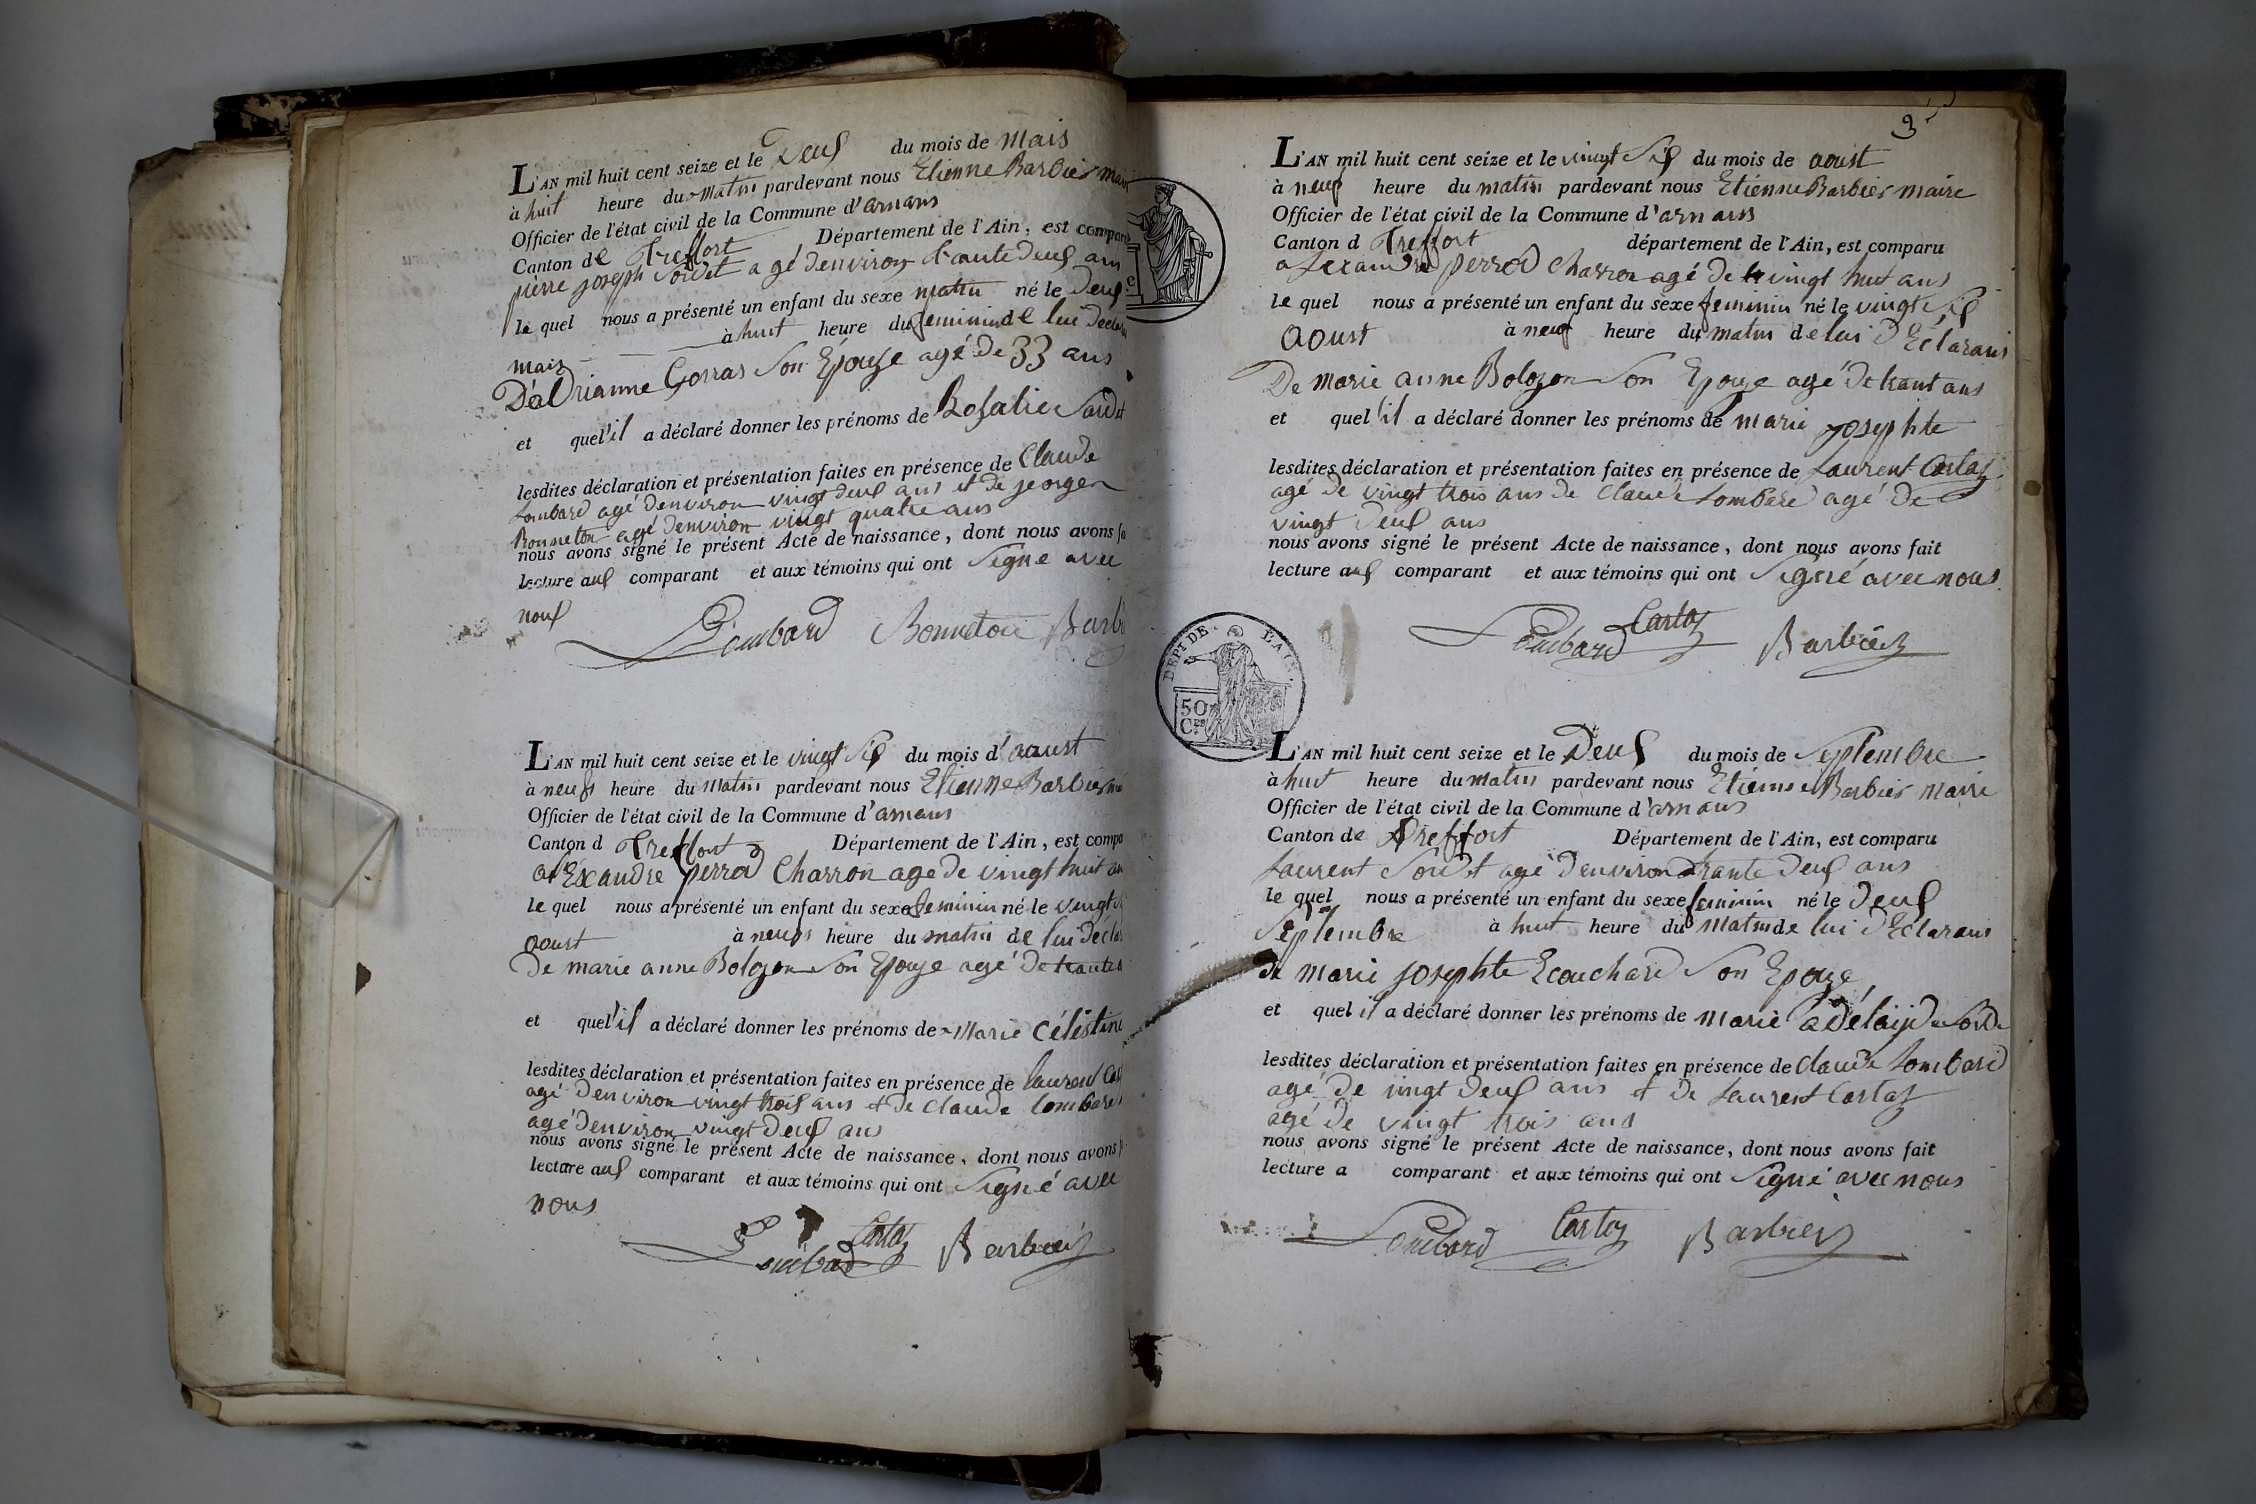 L'AN mil huit cent seize et le Deux du mois de mais
à huit heure du matin pardevant nous Etienne Barbier mai
Officier de l'état civil de la Commune d'arnans
Canton de Treffort Département de l'Ain, est compar
pierre joseph Sordet a gé denviron trante deux ans
le quel nous a présenté un enfant du sexe matin né le Deux
mais à huit heure du feminin de lui declar
D'adrianne Gorras Son Epouse agé de 33 ans
et quel'il a déclaré donner les prénoms de Rosalie Sordet
lesdites déclaration et présentation faites en présence de Claude
Lombard agé denviron vingt deux ans et de jeorge
Bonneton agé denviron vingt quatre ans
nous avons signé le présent Acte de naissance, dont nous avons fa
lecture aux comparant et aux témoins qui ont Signe avec
nous
Lombard Bonneton Barbi
L'AN mil huit cent seize et le vingt Six du mois d'aoust
à neufs heure du matin pardevant nous Etienne Barbier
Officier de l'état civil de la Commune d'arnans
Canton d Treffort Département de l'Ain, est compa
alExandre perrod Charron age de vingt huit an
le quel nous a présenté un enfant du sexe feminin né le vingt
aoust à neufs heure du matin de lui déclar
De marie anne Bolozon Son Epouse agé de trante
et quel'il a déclaré donner les prénoms de Marie célestine
lesdites déclaration et présentation faites en présence de laurent Cart
agé denviron vingt trois ans et de claude lombard
agé denviron vingt deux ans
nous avons signé le présent Acte de naissance, dont nous avons f
lecture aux comparant et aux témoins qui ont Signé avec
nous
Lombard Cartaz Barbier
3
L'AN mil huit cent seize et le vingt Six du mois de aoust
à neuf heure du matin pardevant nous Etienne Barbier maire
Officier de l'état civil de la Commune d'arnans
Canton d Treffort département de l'Ain, est comparu
alexandre perrod Charron agé de vingt huit ans
le quel nous a présenté un enfant du sexe feminin né le vingt Six
aoust à neuf heure du matin de lui dEclarans
De marie anne Bolozon Son Epouse agé de trant ans
et quel'il a déclaré donner les prénoms de marie josephte
lesdites déclaration et présentation faites en présence de Laurent Cartaz
agé de vingt trois ans de Claude Lombard agé de
vingt deux ans
nous avons signé le présent Acte de naissance, dont nous avons fait
lecture aux comparant et aux témoins qui ont Signé avec nous
Lombard Cartaz Barbier
DEPT DE L'AIN
50
Ces
L'AN mil huit cent seize et le Deux du mois de Septembre
à huit heure du matin pardevant nous Etienne Barbier maire
Officier de l'état civil de la Commune d'arnans
Canton de Treffort Département de l'Ain, est comparu
Laurent Sordet agé denviron trante deux ans
le quel nous a présenté un enfant du sexe feminin né le Deux
Septembre à huit heure du matin de lui dEclarans
de marie josephte Ecouchard Son Epouse
et quel il a déclaré donner les prénoms de marie adélaijde Sorde
lesdites déclaration et présentation faites en présence de Claude Lombard
agé de vingt deux ans et de Laurent Cartaz
agé de vingt trois ans
nous avons signé le présent Acte de naissance, dont nous avons fait
lecture a comparant et aux témoins qui ont Signé avec nous
Lombard Cartaz Barbier